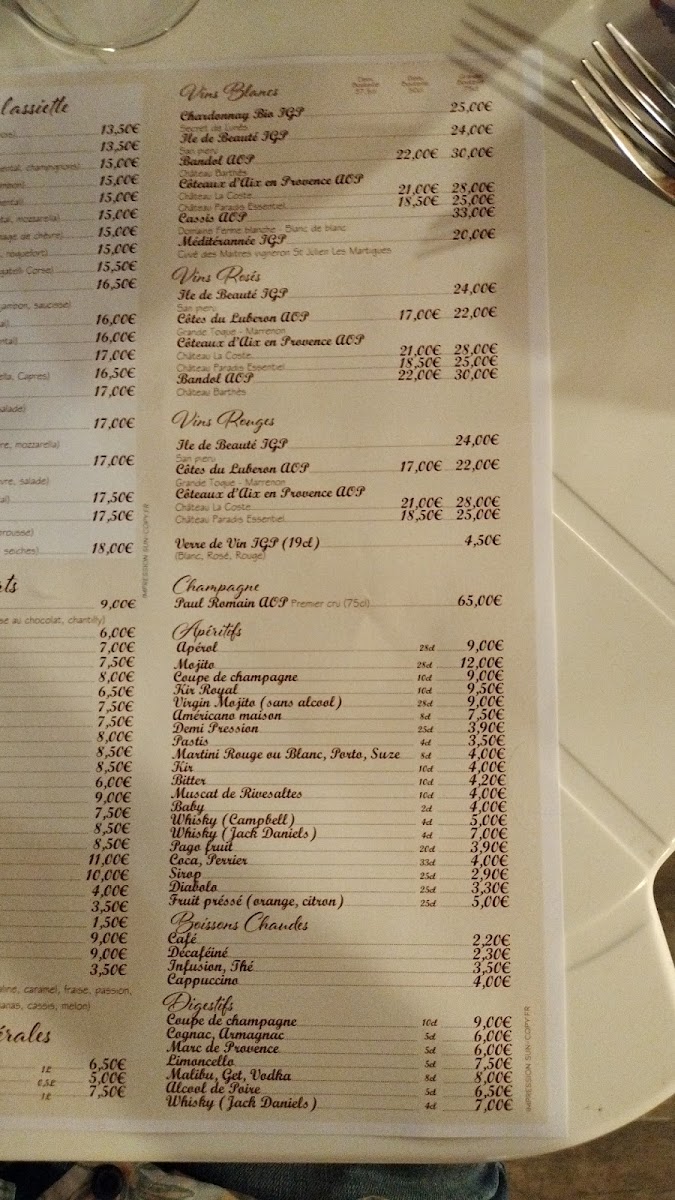 l'assiette
13,50€
13,50€
ental, champignons) 15,00€
15,00€
15,00€
tal, mozzarella) 15,00€
mage de chèvre) 15,00€
, roquefort) 15,50€
gatelli Corse) 16,50€
jambon, saucisse)
16,00€
16,00€
17,00€
ella, Capres) 16,50€
17,00€
salade)
17,00€
re, mozzarella)
17,00€
vre, salade)
17,50€
17,50€
18,00€
seiches)
rts
9,00€
se au chocolat, chantilly)
6,00€
7,00€
7,50€
8,00€
6,50€
7,50€
7,50€
8,00€
8,50€
8,50€
6,00€
9,00€
7,50€
8,50€
8,50€
11,00€
10,00€
4,00€
3,50€
1,50€
9,00€
9,00€
3,50€
aline, caramel, fraise, passion,
anas, cassis, melon)
érales
1L 6,50€
0,5L 5,00€
1L 7,50€
IMPRESSION SUN-COPY.FR
Vins Blancs
Chardonnay Bio IGP 25,00€
Secret de Lunès
Ile de Beauté IGP 24,00€
San pieru
Bandol AOP 22,00€ 30,00€
Château Barthès
Côteaux d'Aix en Provence AOP
Château La Coste 21,00€ 28,00€
Château Paradis Essentiel 18,50€ 25,00€
Cassis AOP 33,00€
Domaine Ferme blanche - Blanc de blanc
Méditérannée IGP 20,00€
Cuvé des Maitres vigneron St Julien Les Martigues
Vins Rosés
Ile de Beauté IGP 24,00€
San pieru
Côtes du Luberon AOP 17,00€ 22,00€
Grande Toque - Marrenon
Côteaux d'Aix en Provence AOP
Château La Coste 21,00€ 28,00€
Château Paradis Essentiel 18,50€ 25,00€
Bandol AOP 22,00€ 30,00€
Château Barthès
Vins Rouges
Ile de Beauté IGP 24,00€
San pieru
Côtes du Luberon AOP 17,00€ 22,00€
Grande Toque - Marrenon
Côteaux d'Aix en Provence AOP
Château La Coste 21,00€ 28,00€
Château Paradis Essentiel 18,50€ 25,00€
Verre de Vin IGP (19cl) 4,50€
(Blanc, Rosé, Rouge)
Champagne
Paul Romain AOP Premier cru (75cl) 65,00€
Apéritifs
Apérol 28cl 9,00€
Mojito 28cl 12,00€
Coupe de champagne 10cl 9,00€
Kir Royal 10cl 9,50€
Virgin Mojito (sans alcool) 28cl 9,00€
Américano maison 8cl 7,50€
Demi Pression 25cl 3,90€
Pastis 4cl 3,50€
Martini Rouge ou Blanc, Porto, Suze 8cl 4,00€
Kir 10cl 4,00€
Bitter 10cl 4,20€
Muscat de Rivesaltes 10cl 4,00€
Baby 2cl 4,00€
Whisky (Campbell) 4cl 5,00€
Whisky (Jack Daniels) 4cl 7,00€
Pago fruit 20cl 3,90€
Coca, Perrier 33cl 4,00€
Sirop 25cl 2,90€
Diabolo 25cl 3,30€
Fruit préssé (orange, citron) 25cl 5,00€
Boissons Chaudes
Café 2,20€
Décaféiné 2,30€
Infusion, Thé 3,50€
Cappuccino 4,00€
Digestifs
Coupe de champagne 10cl 9,00€
Cognac, Armagnac 5cl 6,00€
Marc de Provence 5cl 6,00€
Limoncello 5cl 7,50€
Malibu, Get, Vodka 8cl 8,00€
Alcool de Poire 5cl 6,50€
Whisky (Jack Daniels) 4cl 7,00€
IMPRESSION SUN-COPY.FR